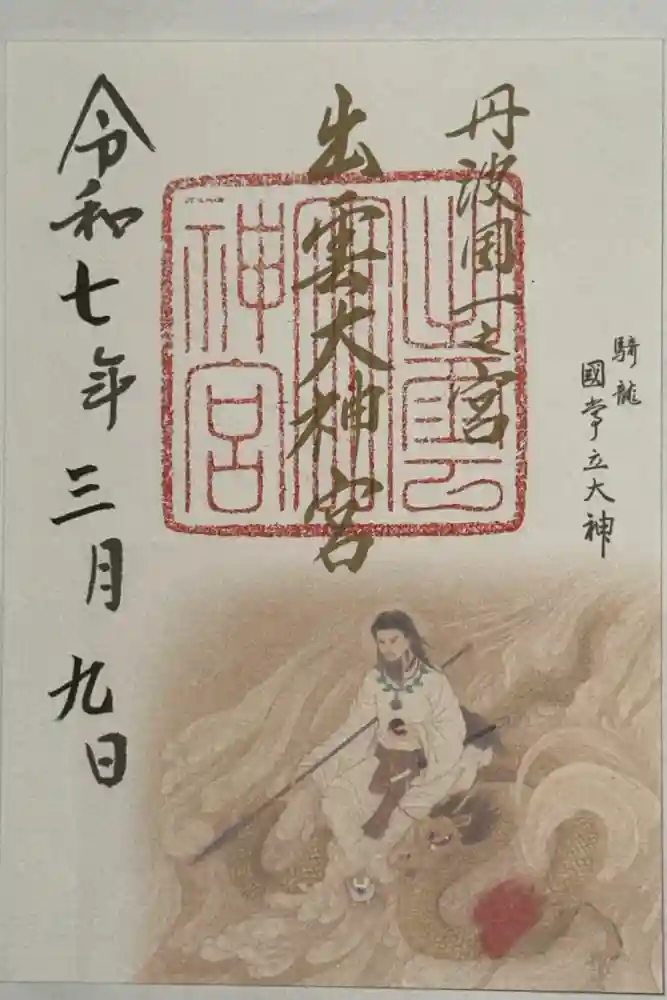 丹波国一之宮
騎龍
國常立大神
出雲大神宮
出雲
大神宮
令和七年三月九日